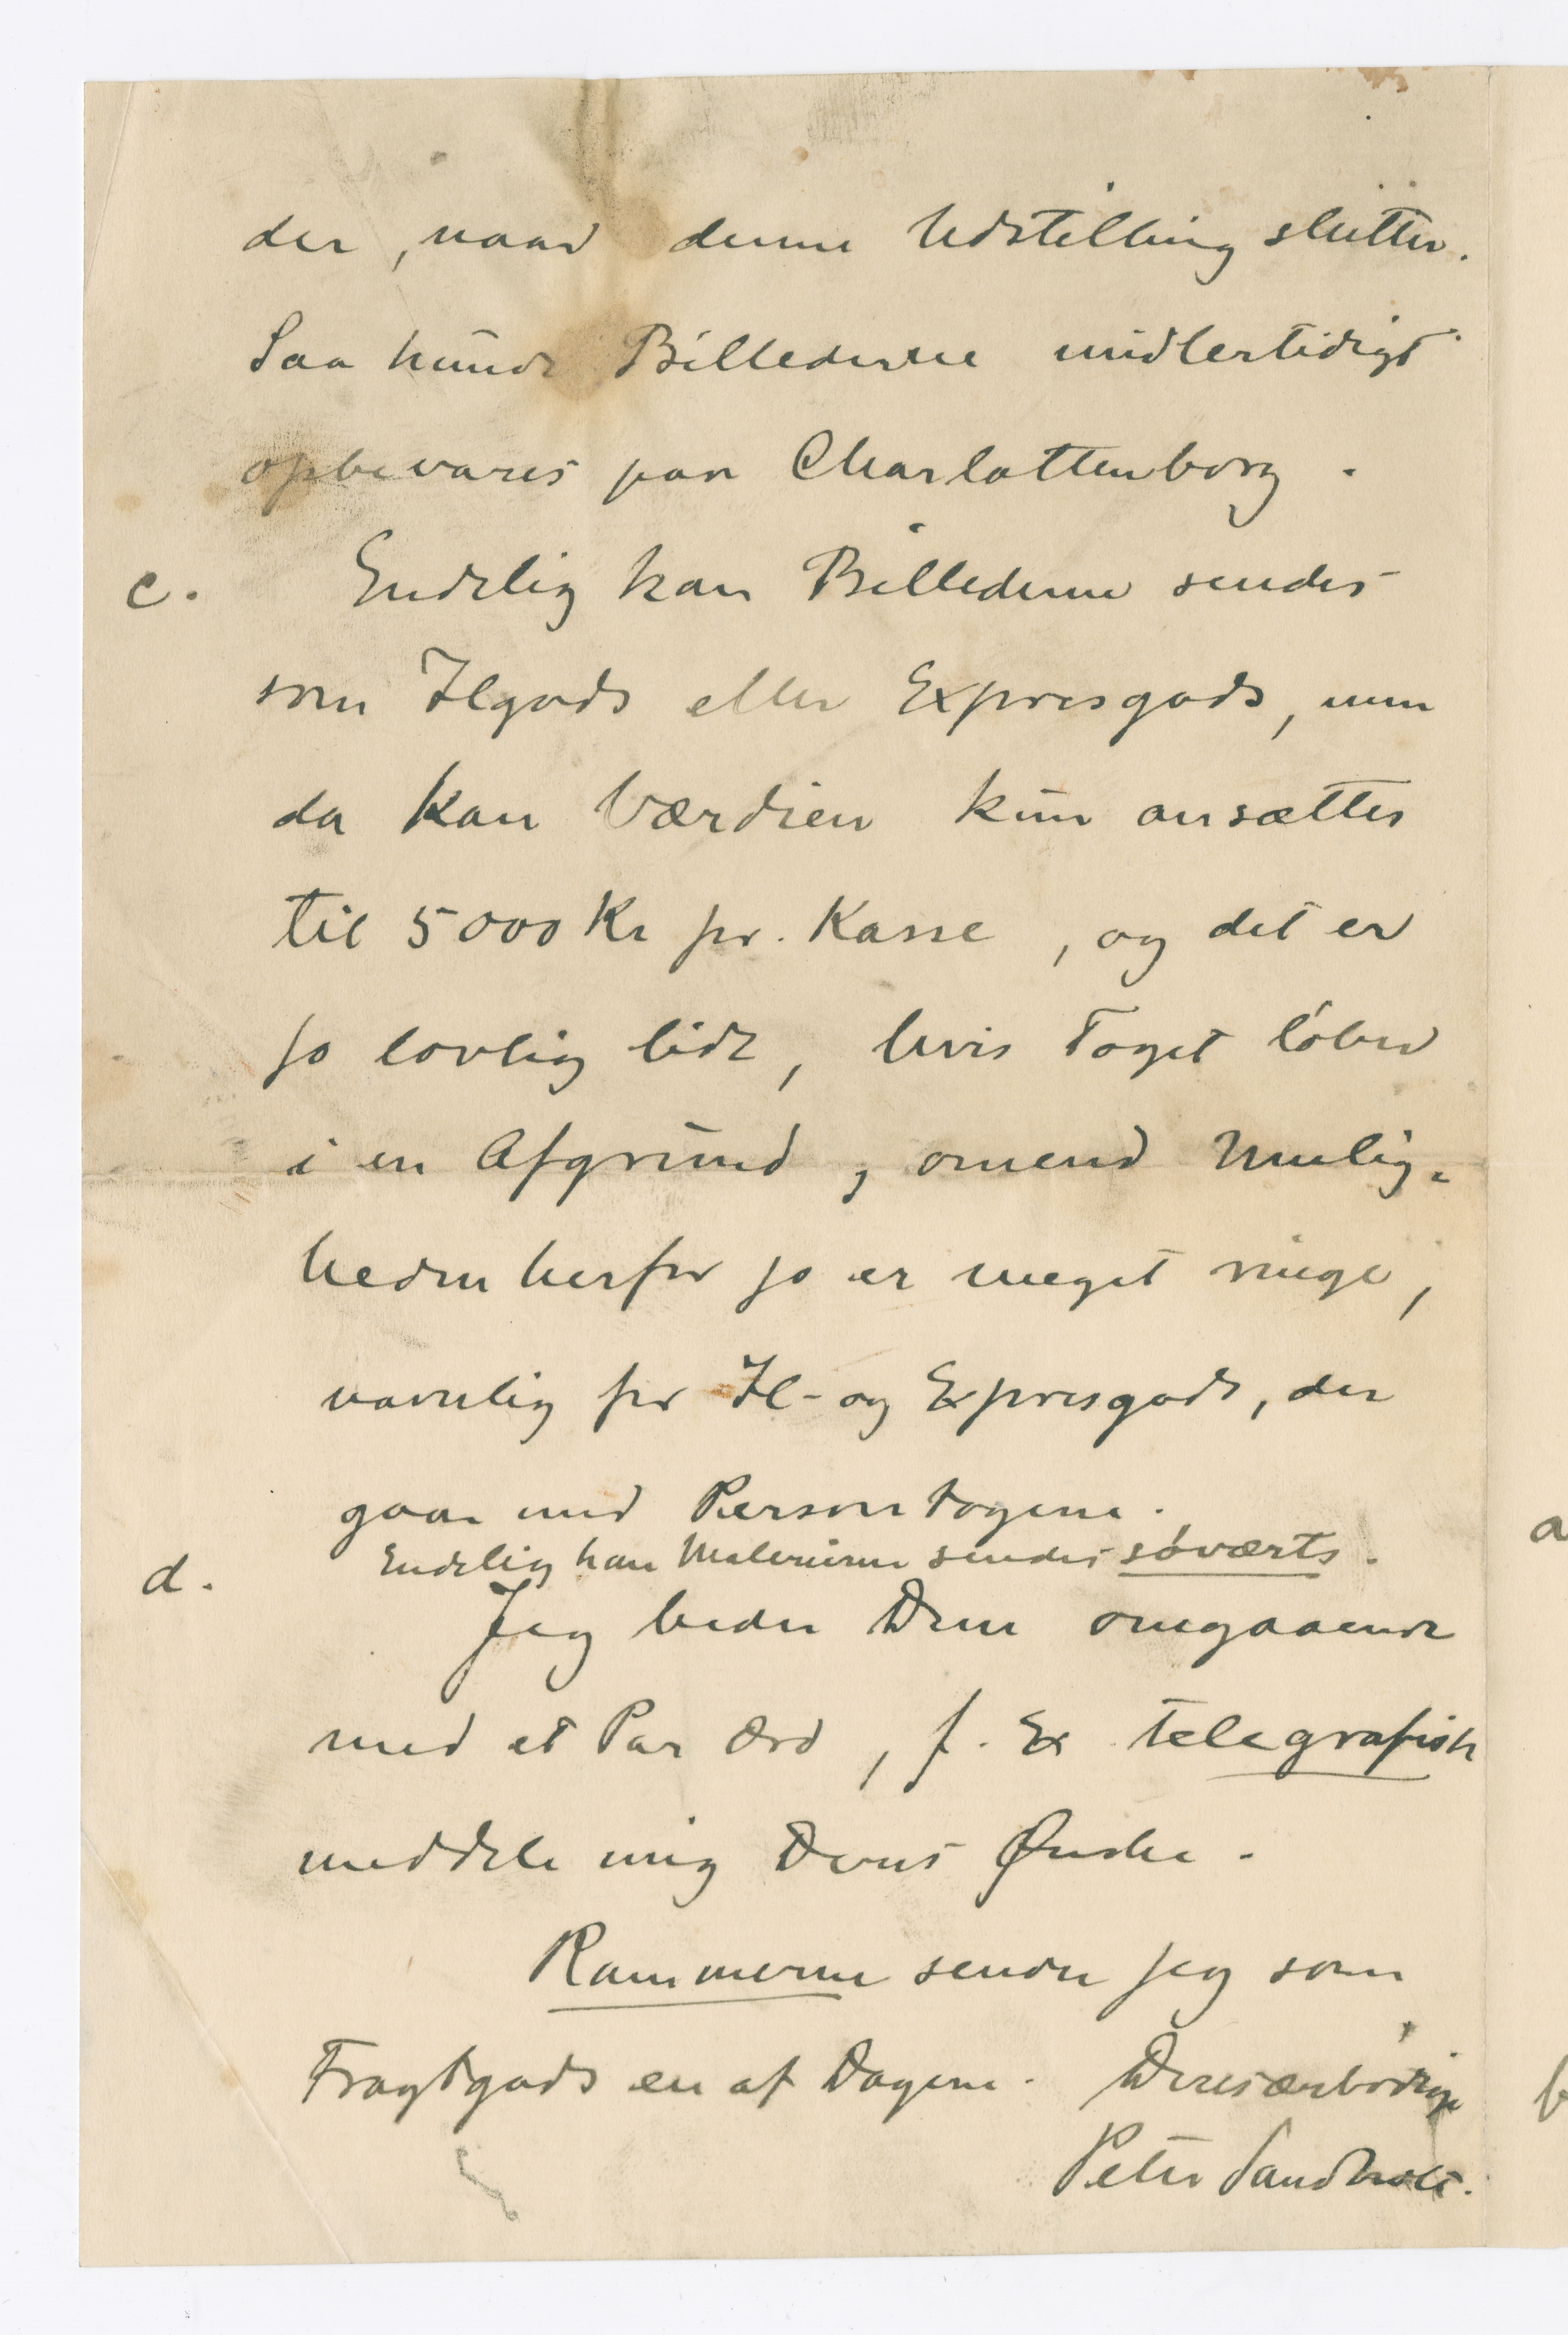 der, naar denne Udstilling slutter.
Saa kunde Billederne midlertidigt
opbevares paa Charlottenborg.
c. Endelig kan Billederne sendes
som Ilgods eller Expresgods, men
da kan Værdien kun ansættes
til 5000 Kr pr. Kasse, og det er
jo lovlig lidt, hvis Toget løber
i en Afgrund, omend Mulig-
heden herfor jo er meget ringe,
navnlig for Il- og Expresgods, der
gaar med Persontogene.
d. Endelig kan Malerierne sendes søværts.
Jeg beder Dem omgaaende
med et Par Ord, f. Ex telegrafisk
meddele mig Deres Ønske.
Rammerne sender jeg som
Fragtgods en af Dagene. Deres ærbødige
Peter Sandholt.
a
b